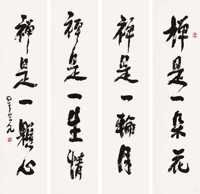 禅是一朵花
禅是一轮月
禅是一生情
禅是一颗心